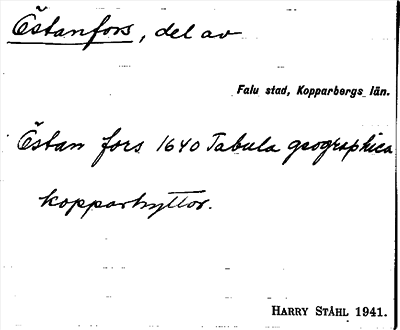 Östanfors, del av
Falu stad, Kopparbergs län.
Östan fors 1640 Tabula geographica
kopparhyttor.
HARRY STÅHL 1941.